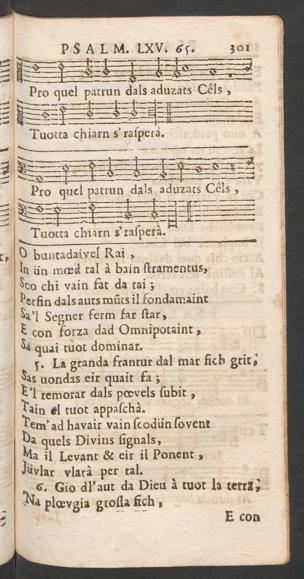 PSALM. LXV. 65. 301
Pro quel patrun dals aduzats Cêls,
Tuotta chiarn s'rasperà.
Pro quel patrun dals aduzats Cêls,
Tuotta chiarn s'rasperà.
O buntadaivel Rai,
In ün mœd tal à bain stramentus,
Sco chi vain fat da tai;
Persin dals auts mûts il fondamaint
Sa'l Segner ferm far star,
E con forza dad Omnipotaint,
Sa quai tuot dominar.
5. La granda frantur dal mar sich grit,
Sas uondas eir quait fa;
E'l remorar dals pœvels subit,
Tain el tuot appaschà.
Tem' ad havair vain scodün sovent
Da quels Divins signals,
Ma il Levant & eir il Ponent,
Jüvlar vlarà per tal.
6. Gio dl'aut da Dieu à tuot la terra,
'Na plœvgia grossa sich,
E con